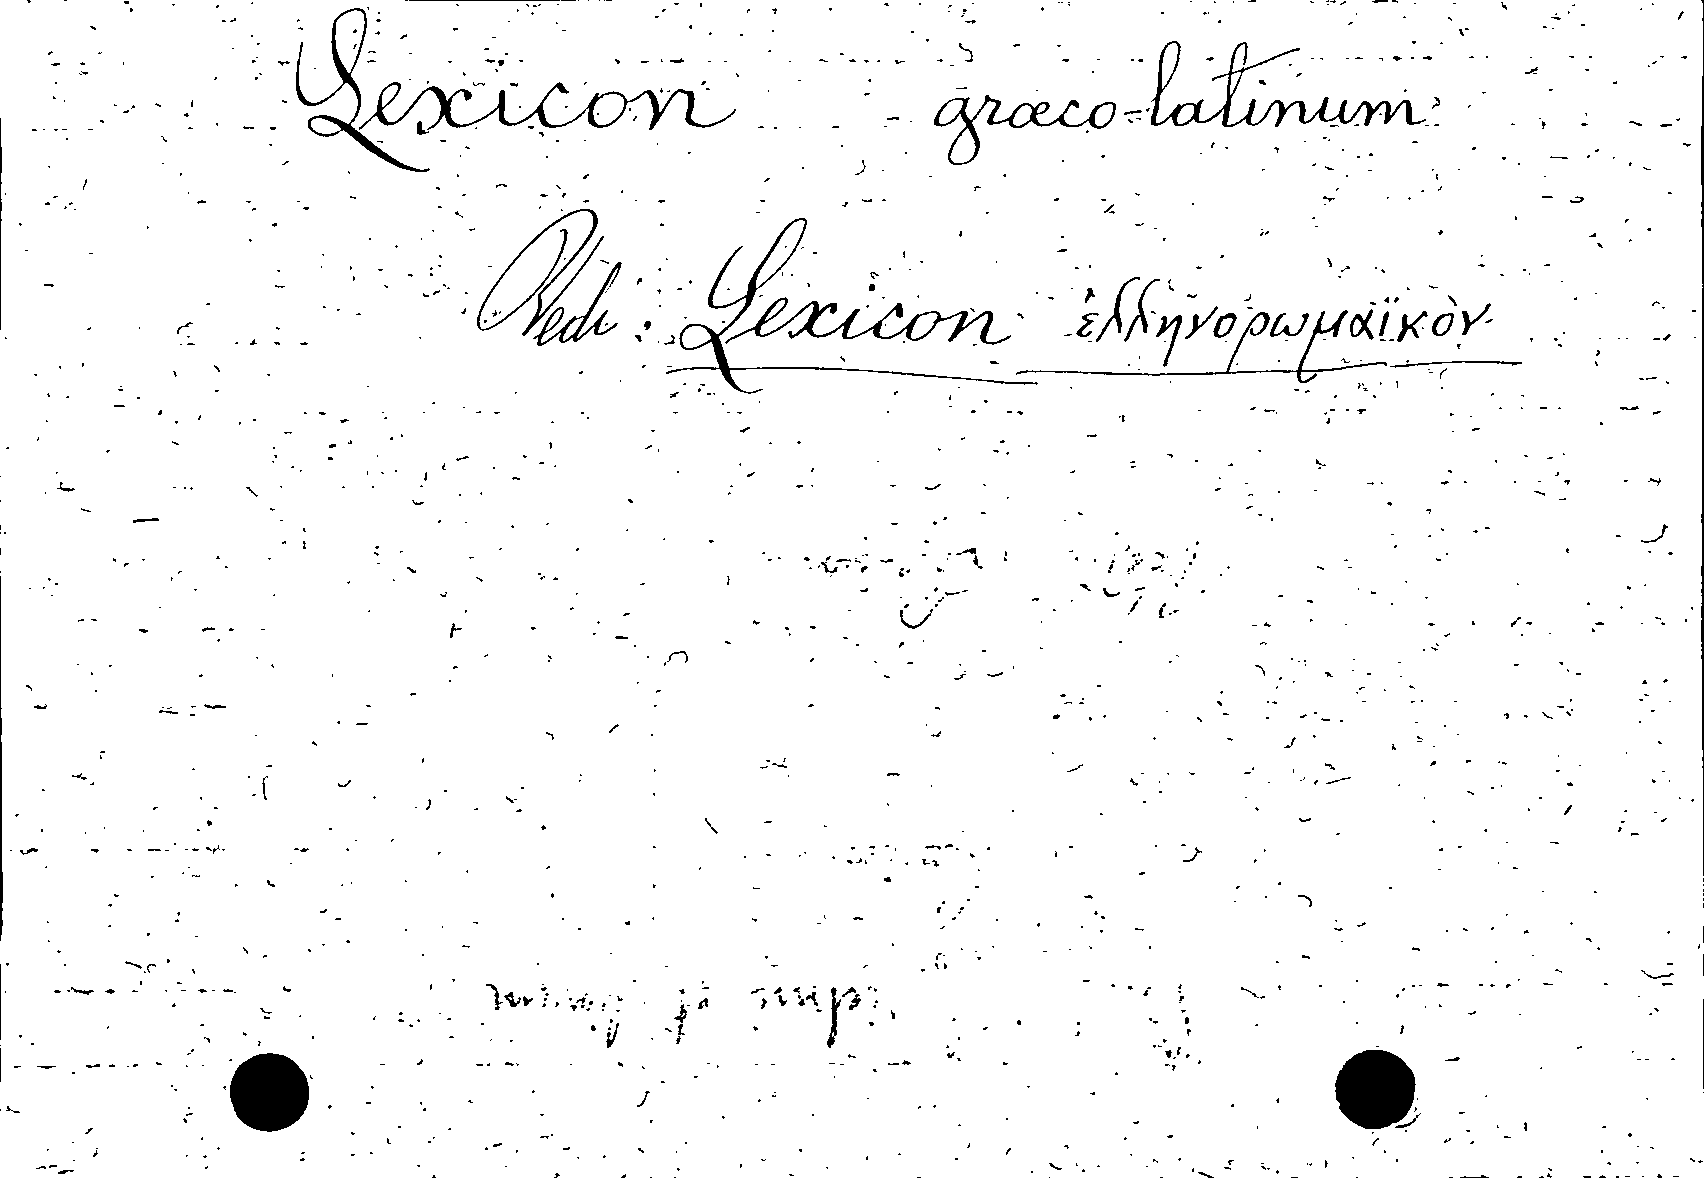 Lexicon græco-latinum
Vedi: Lexicon ἑλληνορωμαϊκὸν